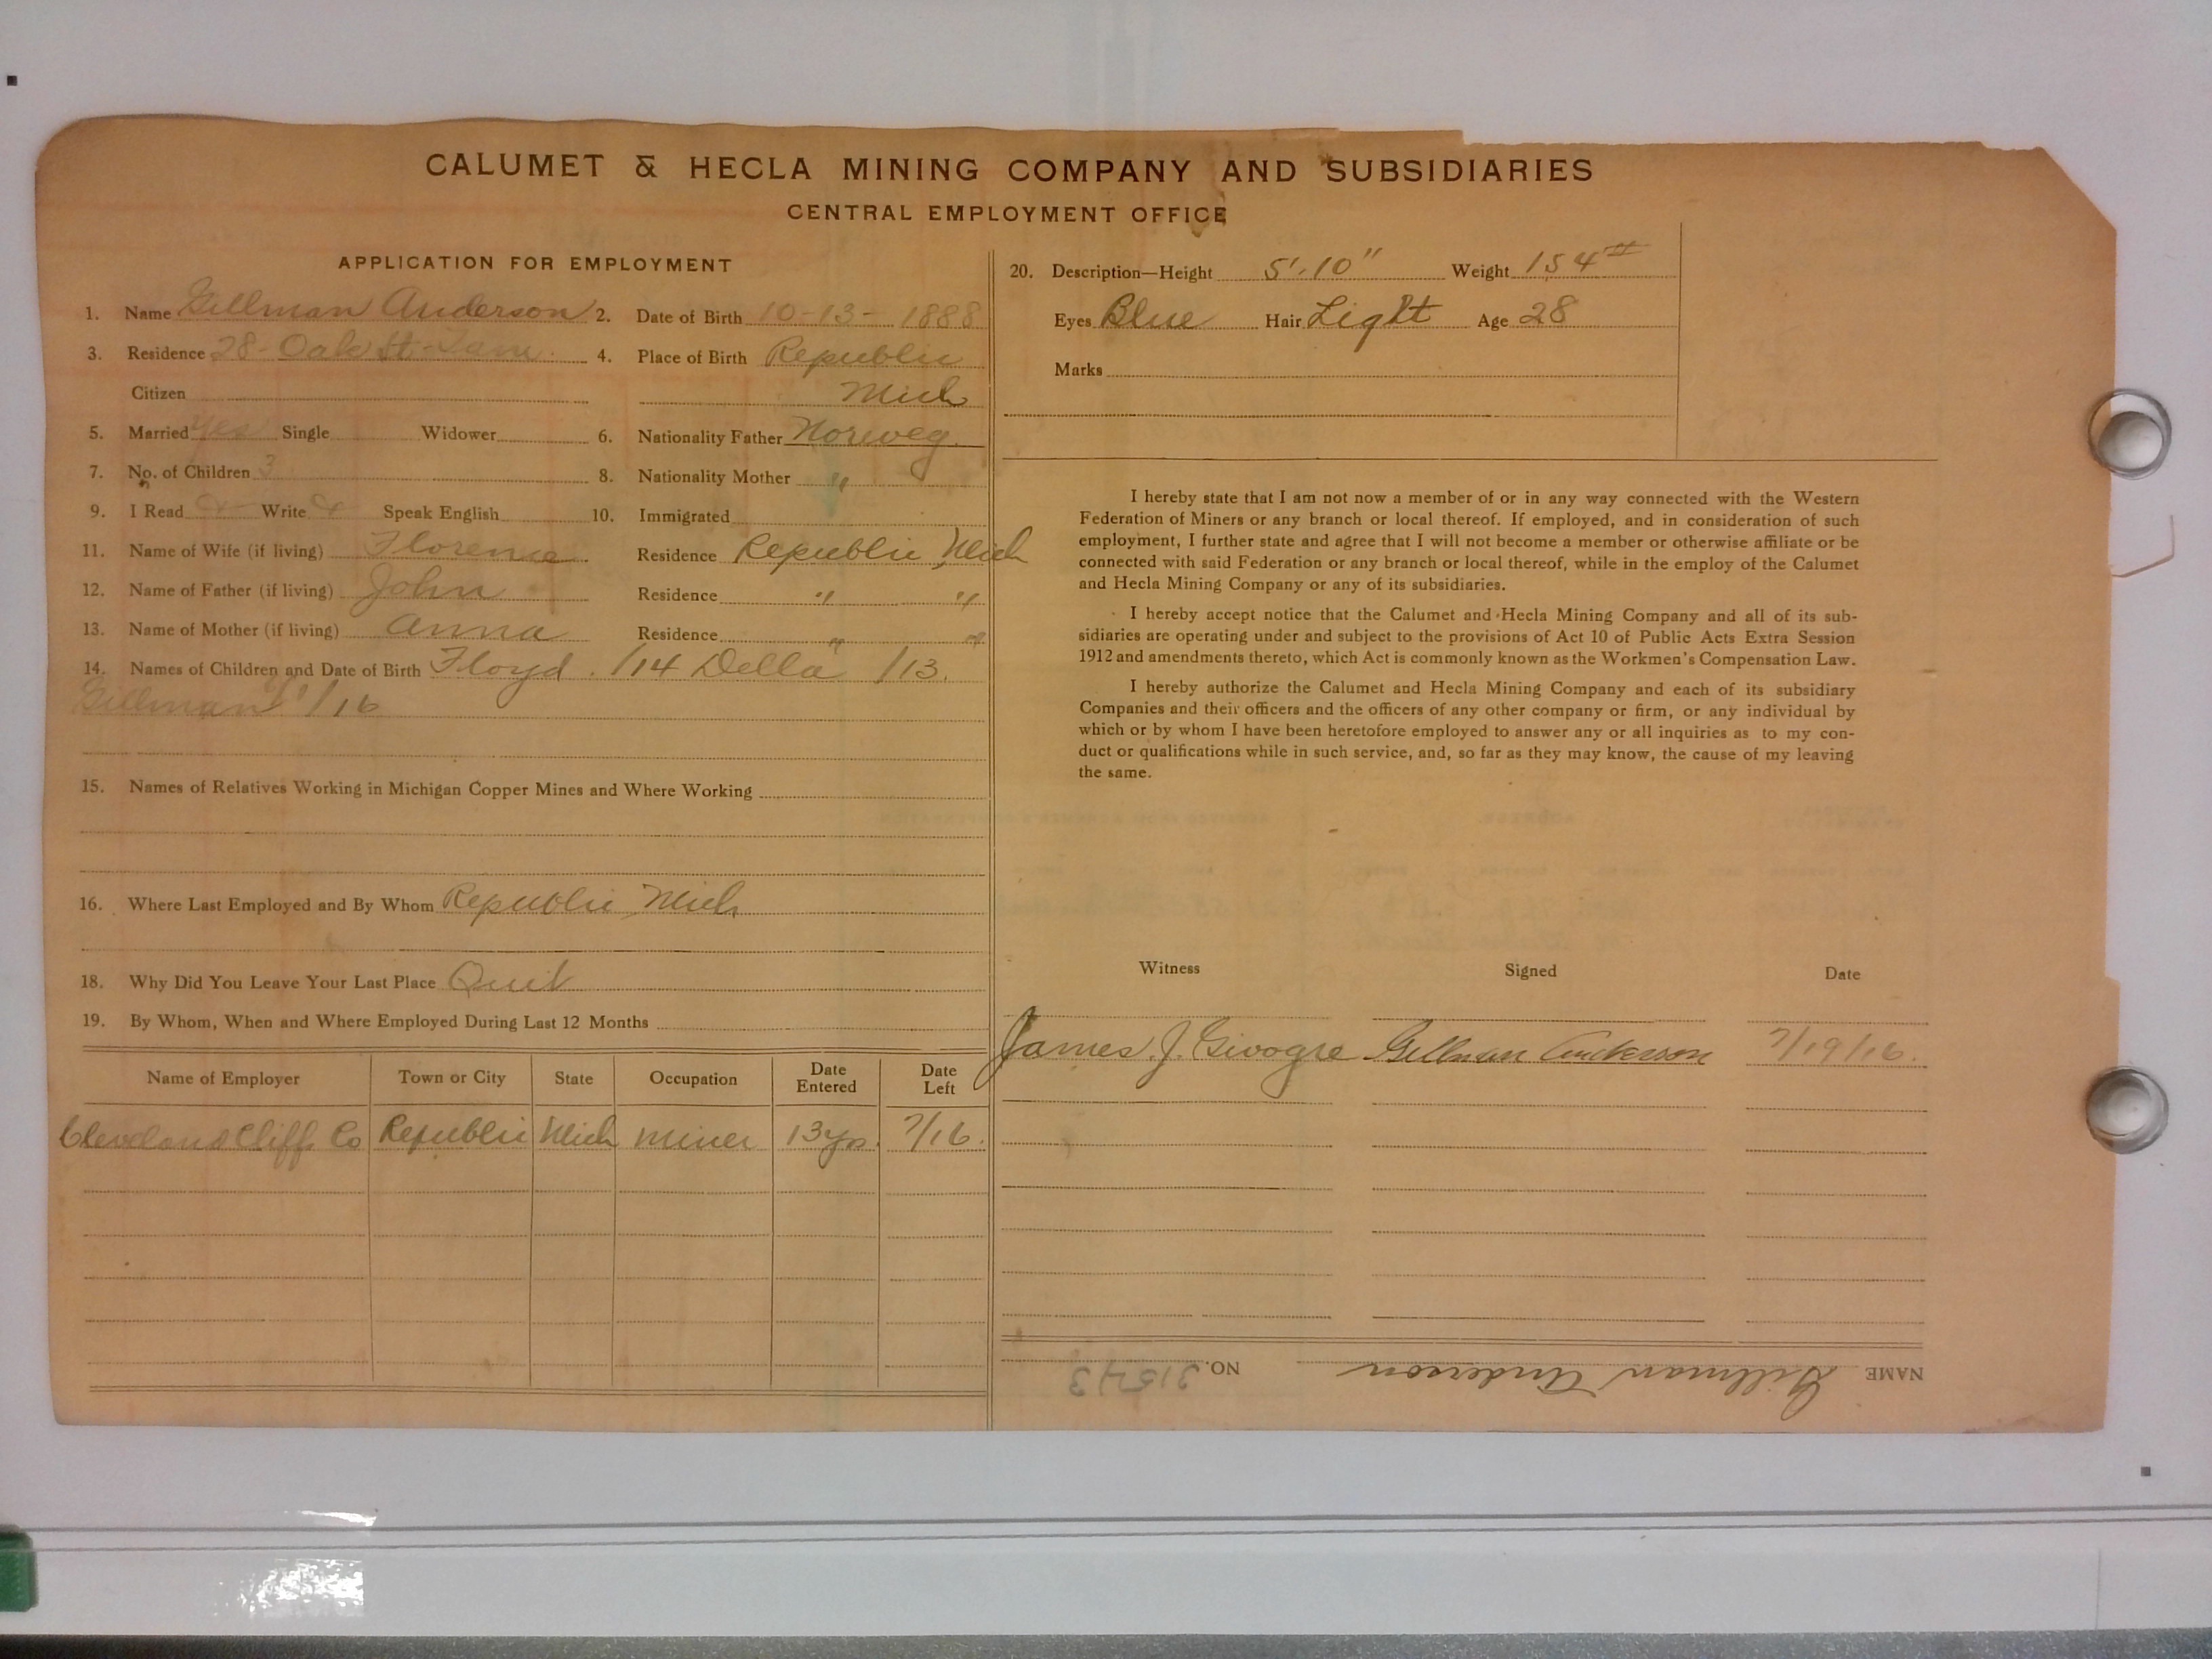 CALUMET & HECLA MINING COMPANY AND SUBSIDIARIES
CENTRAL EMPLOYMENT OFFICE
APPLICATION FOR EMPLOYMENT
1. Name Gillman Anderson 2. Date of Birth 10-13-1888
3. Residence 28-Oak St- 4. Place of Birth Republic
Citizen Mich
5. Married Yes Single Widower 6. Nationality Father Norweg.
7. No. of Children 3 8. Nationality Mother "
9. I Read Write Speak English 10. Immigrated
11. Name of Wife (if living) Florence Residence Republic Mich
12. Name of Father (if living) John Residence " "
13. Name of Mother (if living) Anna Residence " "
14. Names of Children and Date of Birth Floyd. /14 Della /13.
Gillman /16
15. Names of Relatives Working in Michigan Copper Mines and Where Working
16. Where Last Employed and By Whom Republic Mich
18. Why Did You Leave Your Last Place Quit
19. By Whom, When and Where Employed During Last 12 Months
Name of Employer Town or City State Occupation Date Entered Date Left
Cleveland Cliffs Co Republic Mich Miner 13yrs. 7/16.
20. Description—Height 5'.10" Weight 154#
Eyes Blue Hair Light Age 28
Marks
I hereby state that I am not now a member of or in any way connected with the Western
Federation of Miners or any branch or local thereof. If employed, and in consideration of such
employment, I further state and agree that I will not become a member or otherwise affiliate or be
connected with said Federation or any branch or local thereof, while in the employ of the Calumet
and Hecla Mining Company or any of its subsidiaries.
I hereby accept notice that the Calumet and Hecla Mining Company and all of its sub-
sidiaries are operating under and subject to the provisions of Act 10 of Public Acts Extra Session
1912 and amendments thereto, which Act is commonly known as the Workmen's Compensation Law.
I hereby authorize the Calumet and Hecla Mining Company and each of its subsidiary
Companies and their officers and the officers of any other company or firm, or any individual by
which or by whom I have been heretofore employed to answer any or all inquiries as to my con-
duct or qualifications while in such service, and, so far as they may know, the cause of my leaving
the same.
Witness Signed Date
James J. Gillman Anderson 7/19/16.
NAME Gillman Anderson NO. 31543